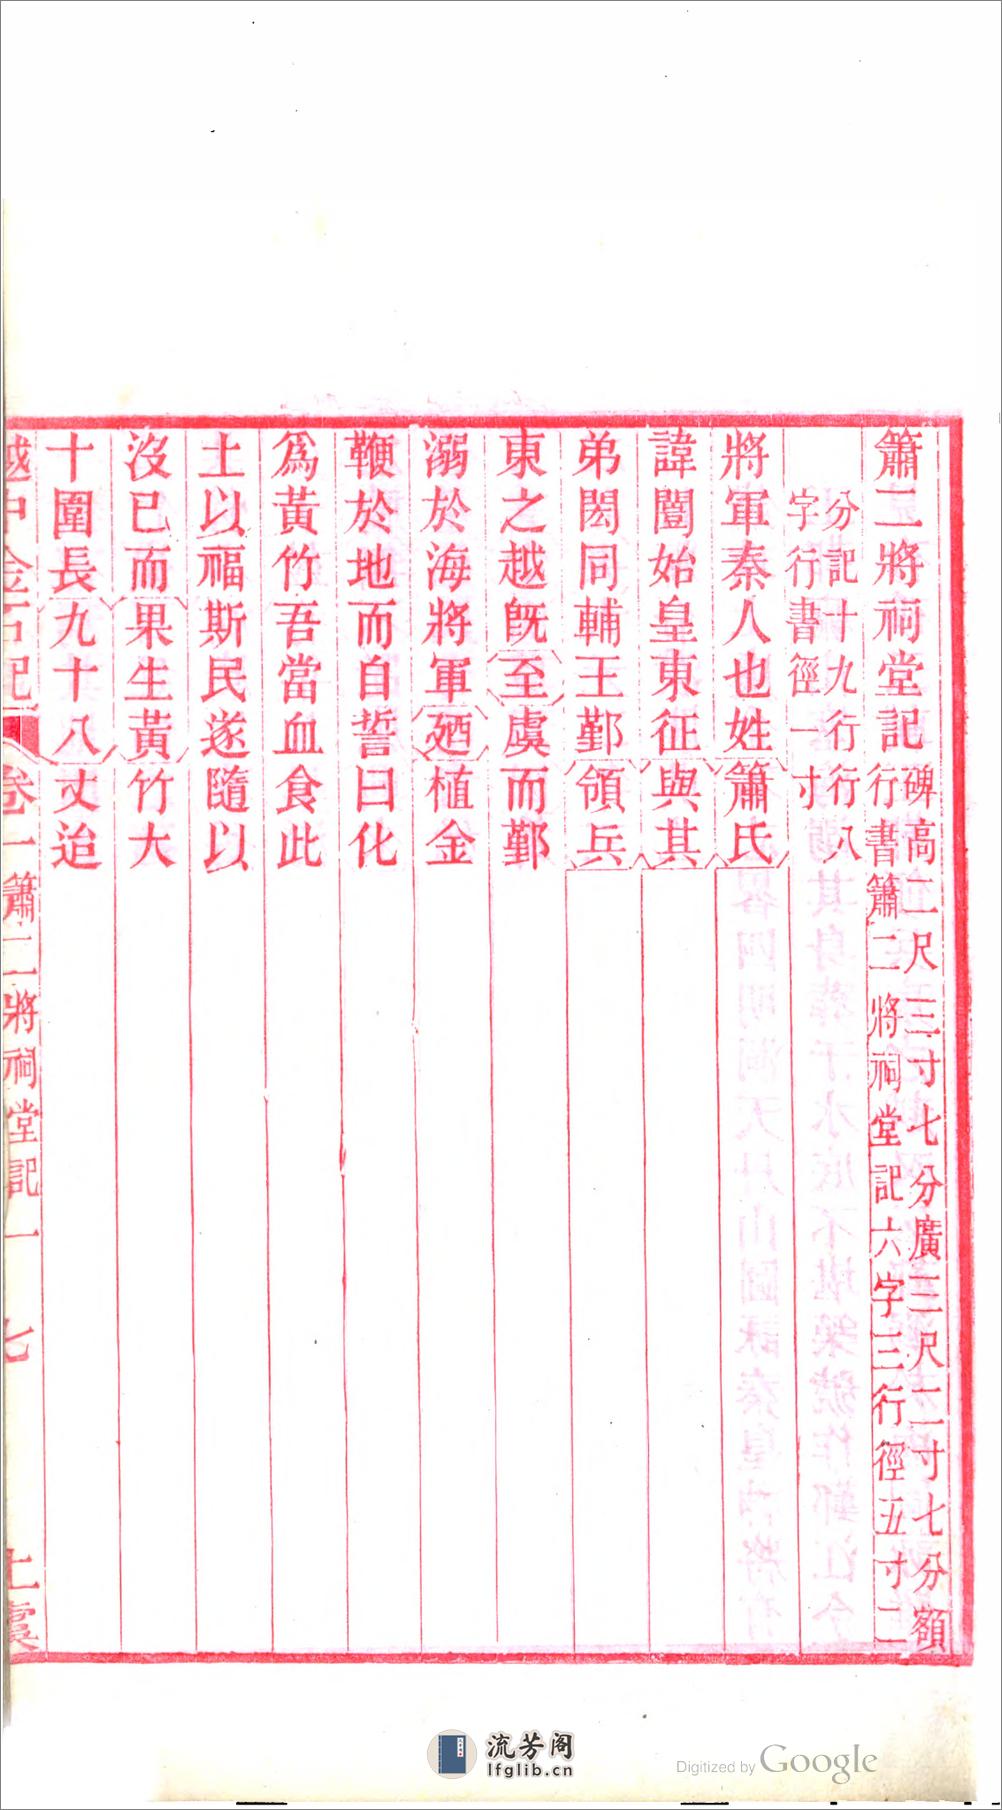 簫二將祠堂記碑高二尺三寸七分廣三尺二寸七分額
行書簫二將祠堂記六字三行徑五寸二
分記十九行行八
字行書徑一寸
將軍秦人也姓簫氏
諱闓始皇東征與其
弟閎同輔王鄞領兵
東之越旣至虞而鄞
溺於海將軍廼植金
鞭於地而自誓曰化
爲黃竹吾當血食此
土以福斯民遂隨以
沒已而果生黃竹大
十圍長九十八丈迨
越中金石記 卷一簫二將祠堂記一 七 上虞
流芳阁
lfglib.cn
Digitized by Google